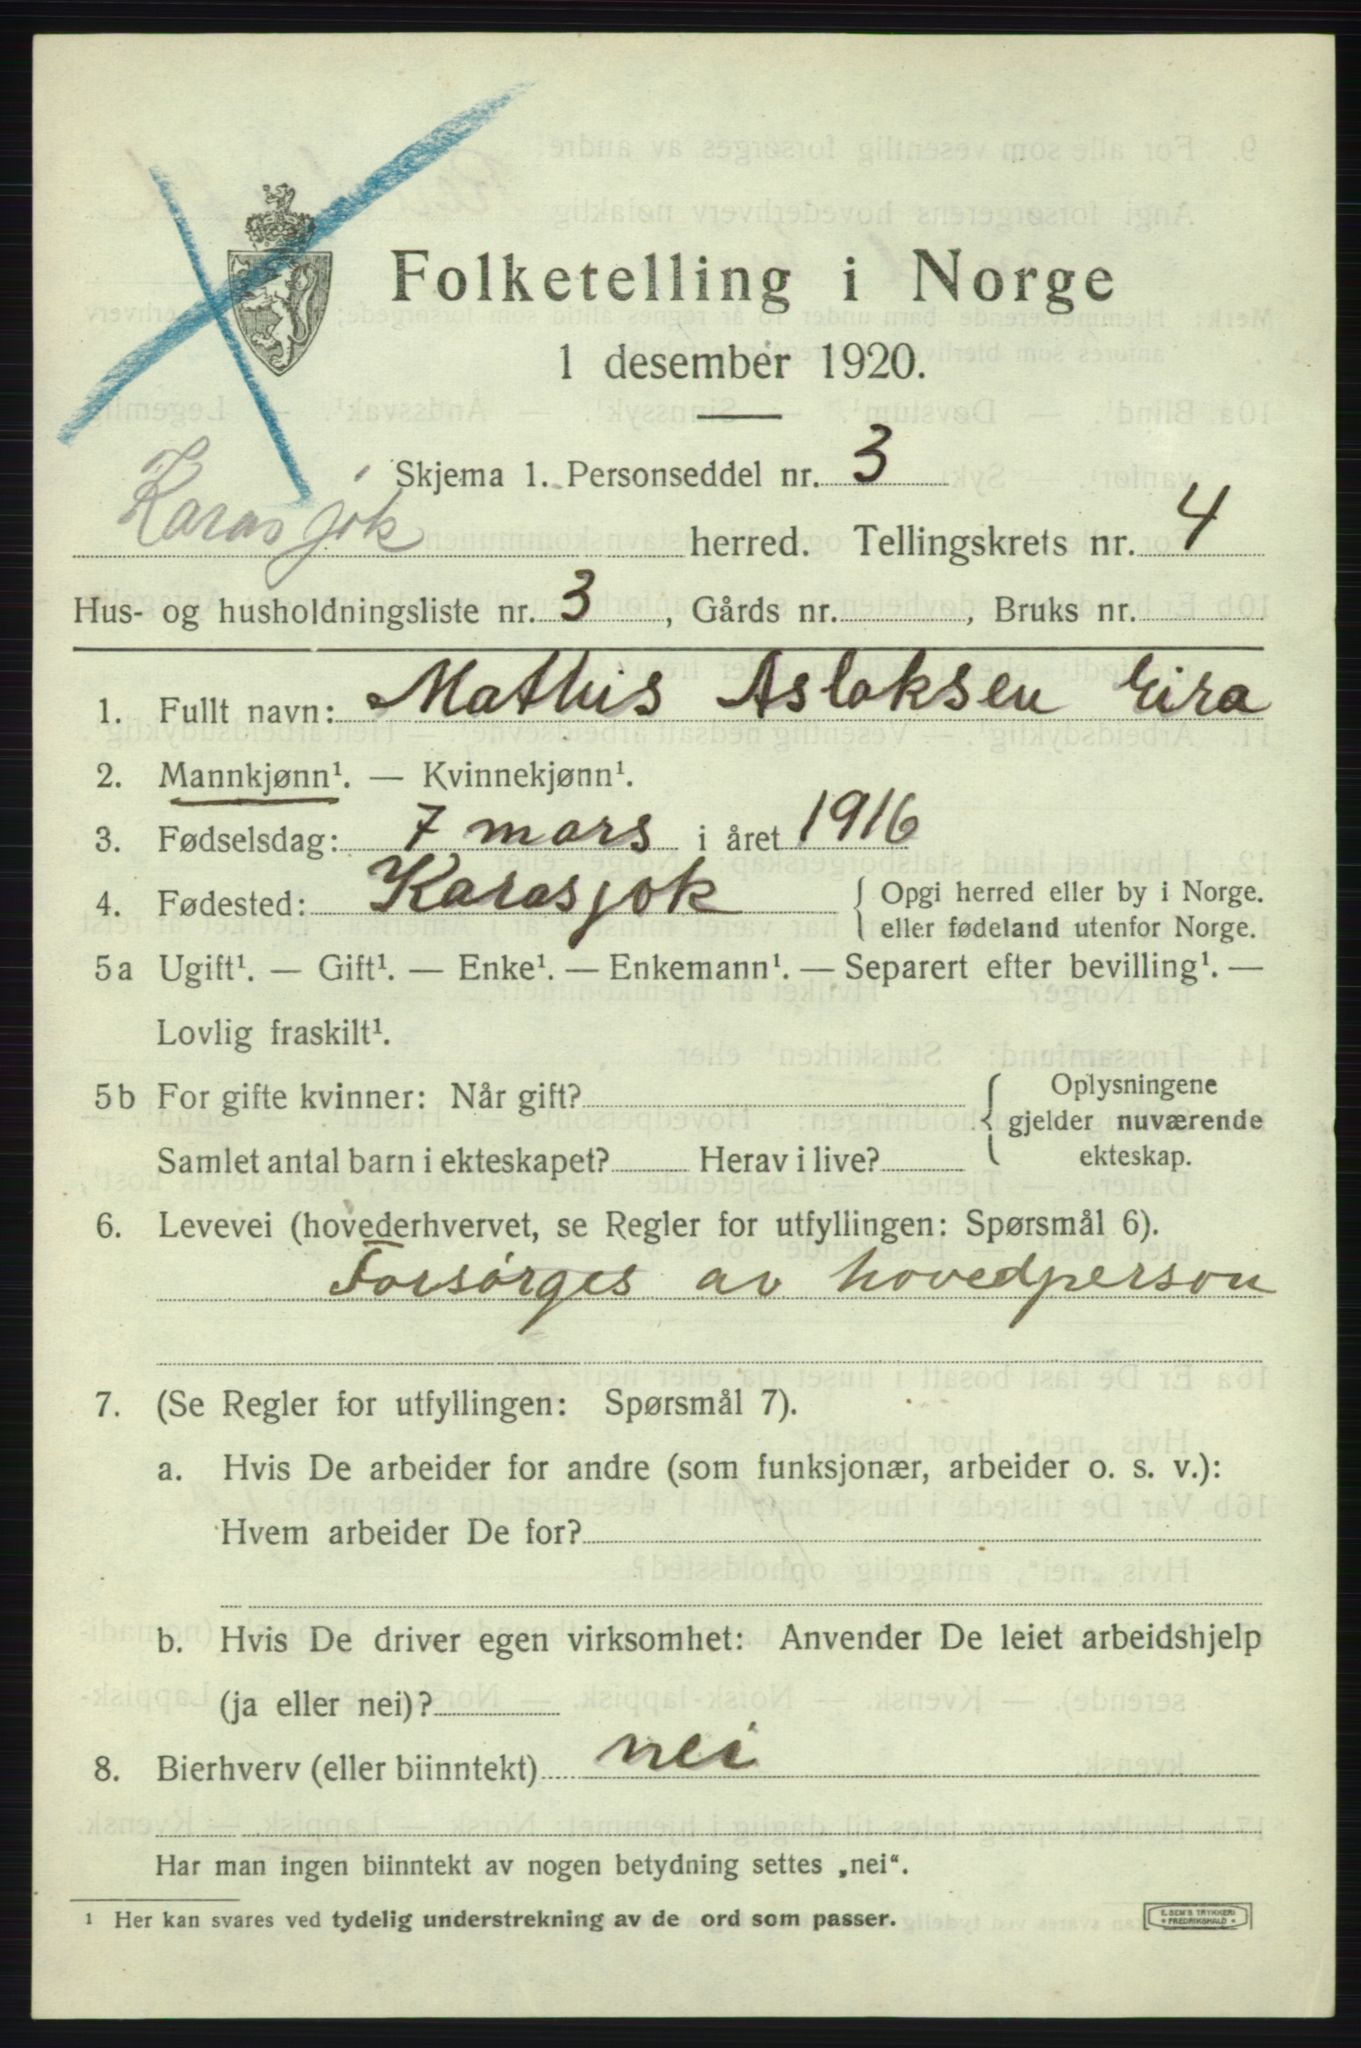 Folketelling i Norge
1 desember 1920.
Skjema 1. Personseddel nr. 3
Karasjok herred. Tellingskrets nr. 4
Hus- og husholdningsliste nr. 3, Gårds nr. , Bruks nr.
1. Fullt navn: Mathis Aslaksen Eira
2. Mannkjønn¹. — Kvinnekjønn¹.
3. Fødselsdag: 7 mars i året 1916
4. Fødested: Karasjok { Opgi herred eller by i Norge.
eller fødeland utenfor Norge.
5a Ugift¹. — Gift¹. — Enke¹. — Enkemann¹. — Separert efter bevilling¹. —
Lovlig fraskilt¹.
5b For gifte kvinner: Når gift? { Oplysningene
gjelder nuværende
ekteskap.
Samlet antal barn i ekteskapet? Herav i live?
6. Levevei (hovederhvervet, se Regler for utfyllingen: Spørsmål 6).
Forsørges av hovedperson
7. (Se Regler for utfyllingen: Spørsmål 7).
a. Hvis De arbeider for andre (som funksjonær, arbeider o. s. v.):
Hvem arbeider De for?
b. Hvis De driver egen virksomhet: Anvender De leiet arbeidshjelp
(ja eller nei)?
8. Bierhverv (eller biinntekt) nei
Har man ingen biinntekt av nogen betydning settes „nei“.
¹ Her kan svares ved tydelig understrekning av de ord som passer.
E. SEM'S TRYKKERI
FREDRIKSHALD